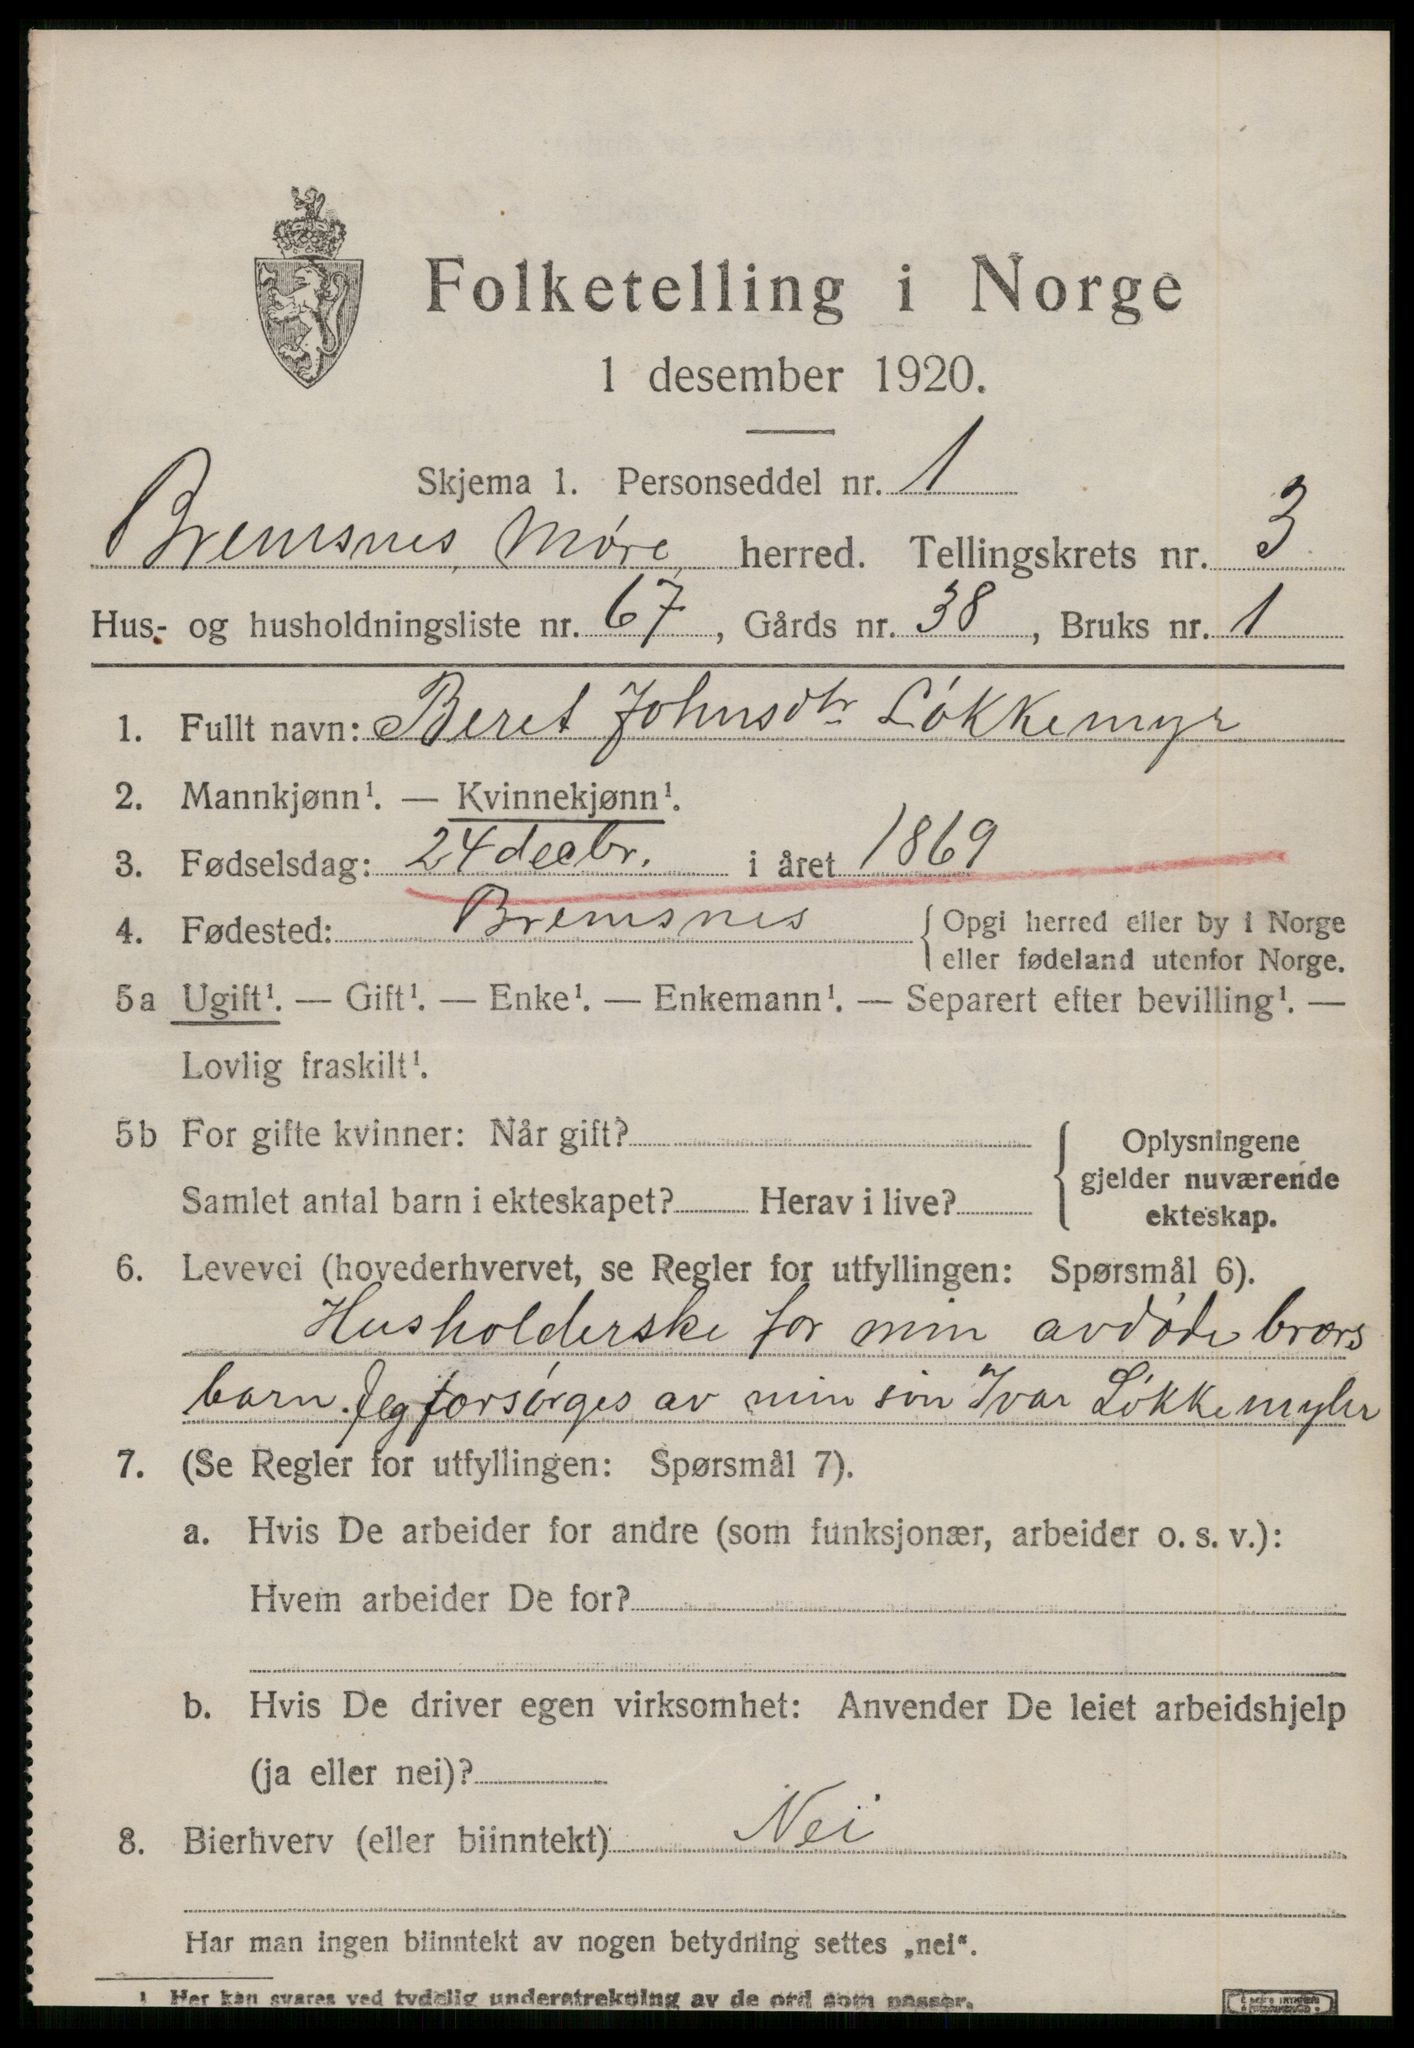 Folketelling i Norge
1 desember 1920.
Skjema 1. Personseddel nr. 1
Bremsnes, Møre, herred. Tellingskrets nr. 3
Hus- og husholdningsliste nr. 67, Gårds nr. 38, Bruks nr. 1
1. Fullt navn: Beret Johnsdtr Løkkemyr
2. Mannkjønn¹. — Kvinnekjønn¹.
3. Fødselsdag: 24 decbr. i året 1869
4. Fødested: Bremsnes { Opgi herred eller by i Norge
eller fødeland utenfor Norge.
5a Ugift¹. — Gift¹. — Enke¹. — Enkemann¹. — Separert efter bevilling¹. —
Lovlig fraskilt¹.
5b For gifte kvinner: Når gift? { Oplysningene
gjelder nuværende
Samlet antal barn i ekteskapet? Herav i live? ekteskap.
6. Levevei (hovederhvervet, se Regler for utfyllingen: Spørsmål 6).
Husholderske for min avdøde brors
barn. Jeg forsørges av min søn Ivar Løkkemyhr
7. (Se Regler for utfyllingen: Spørsmål 7).
a. Hvis De arbeider for andre (som funksjonær, arbeider o. s. v.):
Hvem arbeider De for?
b. Hvis De driver egen virksomhet: Anvender De leiet arbeidshjelp
(ja eller nei)?
8. Bierhverv (eller biinntekt) Nei
Har man ingen biinntekt av nogen betydning settes „nei“.
¹ Her kan svares ved tydelig understrekning av de ord som passer.